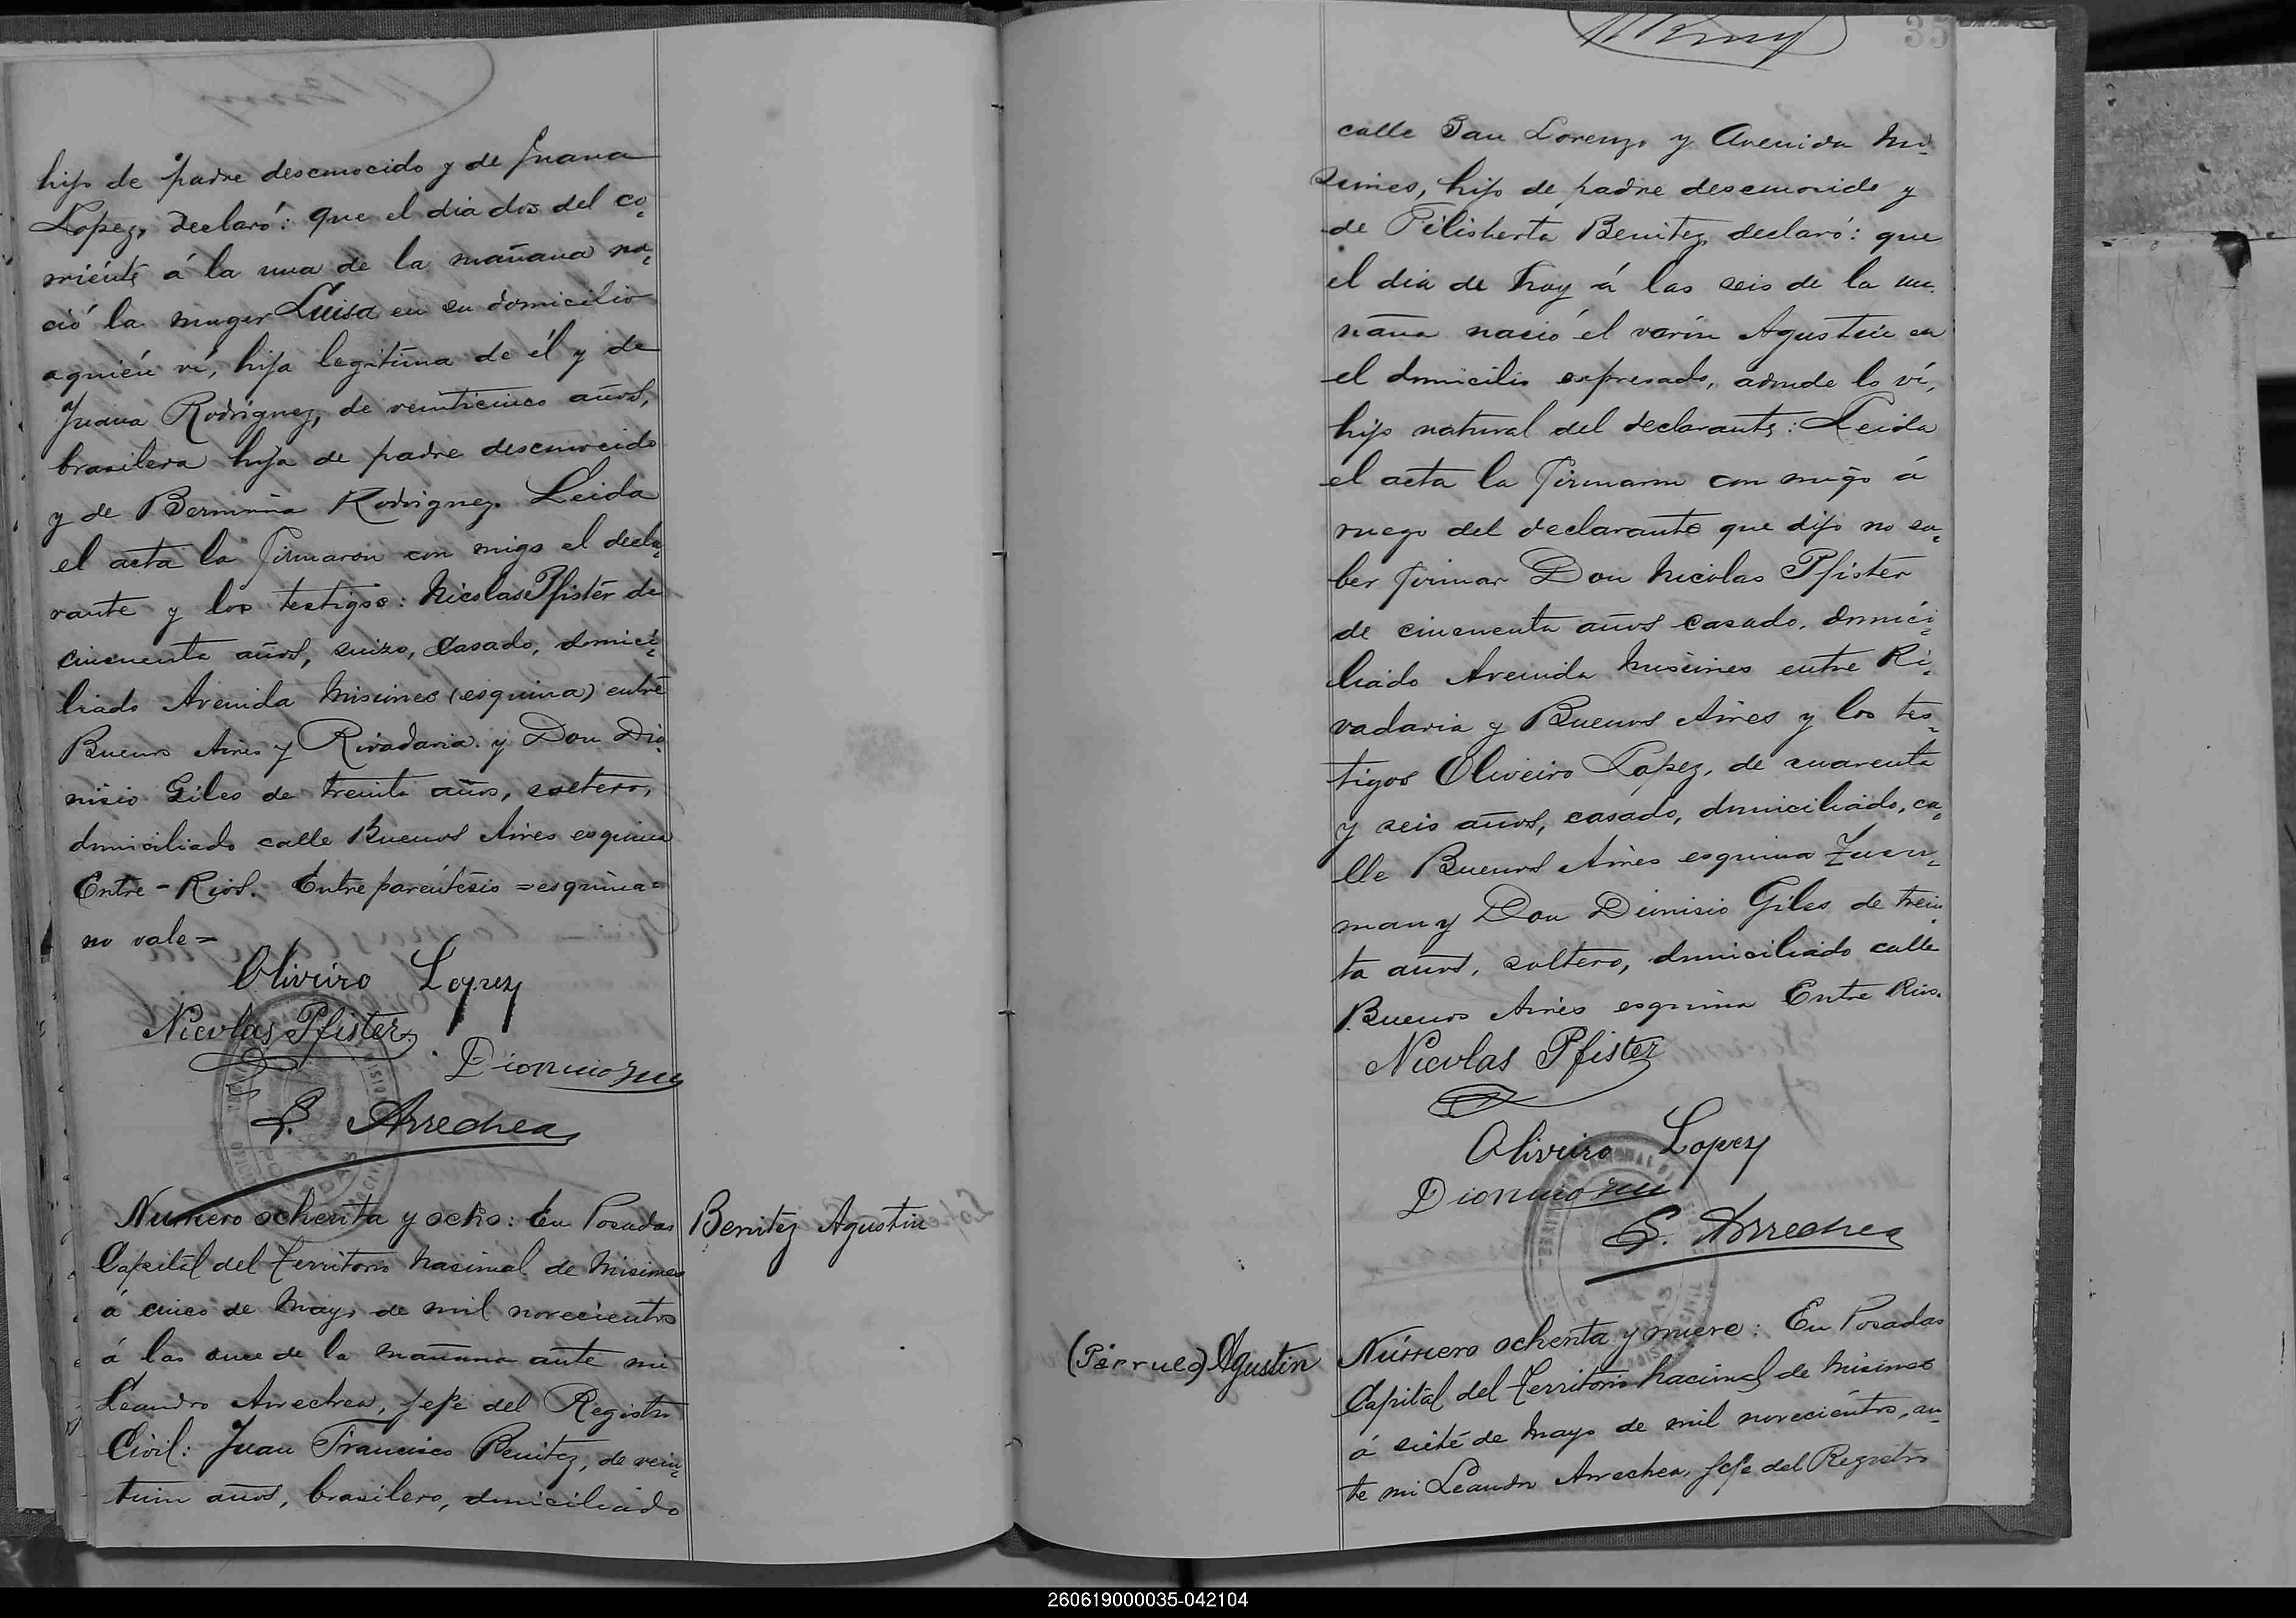 hijo de padre desconocido y de Juana
Lopez, declaró: que el dia dos del co-
rriente á la una de la mañana na-
ció la muger Luisa en su domicilio
aquién ví, hija legitima de él y de
Juana Rodriguez, de veinticinco años,
brasilera hija de padre desconocido
y de Rodriguez. Leida
el acta la firmaron con migo el decla-
rante y los testigos: Nicolas Pfister de
cincuenta años, suizo, casado, domici-
liado Avenida Misiones (esquina) entre
Buenos Aires y Rivadavia y Don Dio-
nisio Giles de treinta años, soltero,
domiciliado calle Buenos Aires esquina
Entre-Rios. Entre paréntesis =esquina=
no vale=
Oliveiro Lopez
Nicolas Pfister
Dionicio
L. Arrechea
Número ochenta y ocho: En Posadas
Capital del Territorio Nacional de Misiones
á cinco de Mayo de mil novecientos
á las once de la mañana ante mi
Leandro Arrechea, Jefe del Registro
Civil: Juan Francisco Benitez, de vein-
tiun años, brasilero, domiciliado
Benitez Agustin
35
calle San Lorenzo y Avenida Mi-
siones, hijo de padre desconocido y
de Filisberta Benitez, declaró: que
el dia de hoy á las seis de la ma-
ñana nació el varón Agustin en
el domicilio expresado, adonde lo ví,
hijo natural del declarante: Leida
el acta la firmaron con migo á
ruego del declarante que dijo no sa-
ber firmar Don Nicolas Pfister
de cincuenta años casado, domici-
liado Avenida Misiones entre Ri-
vadavia y Buenos Aires y los tes-
tigos Oliveiro Lopez, de cuarenta
y seis años, casado, domiciliado, ca-
lle Buenos Aires esquina Tucu-
man y Don Dionisio Giles de trein-
ta años, soltero, domiciliado calle
Buenos Aires esquina Entre Rios.
Nicolas Pfister
Oliveiro Lopez
Dionicio
L. Arrechea
(Párvulo) Agustin
Número ochenta y nueve: En Posadas
Capital del Territorio Nacional de Misiones
á siete de Mayo de mil novecientos, an-
te mi Leandro Arrechea, Jefe del Registro
260619000035-042104